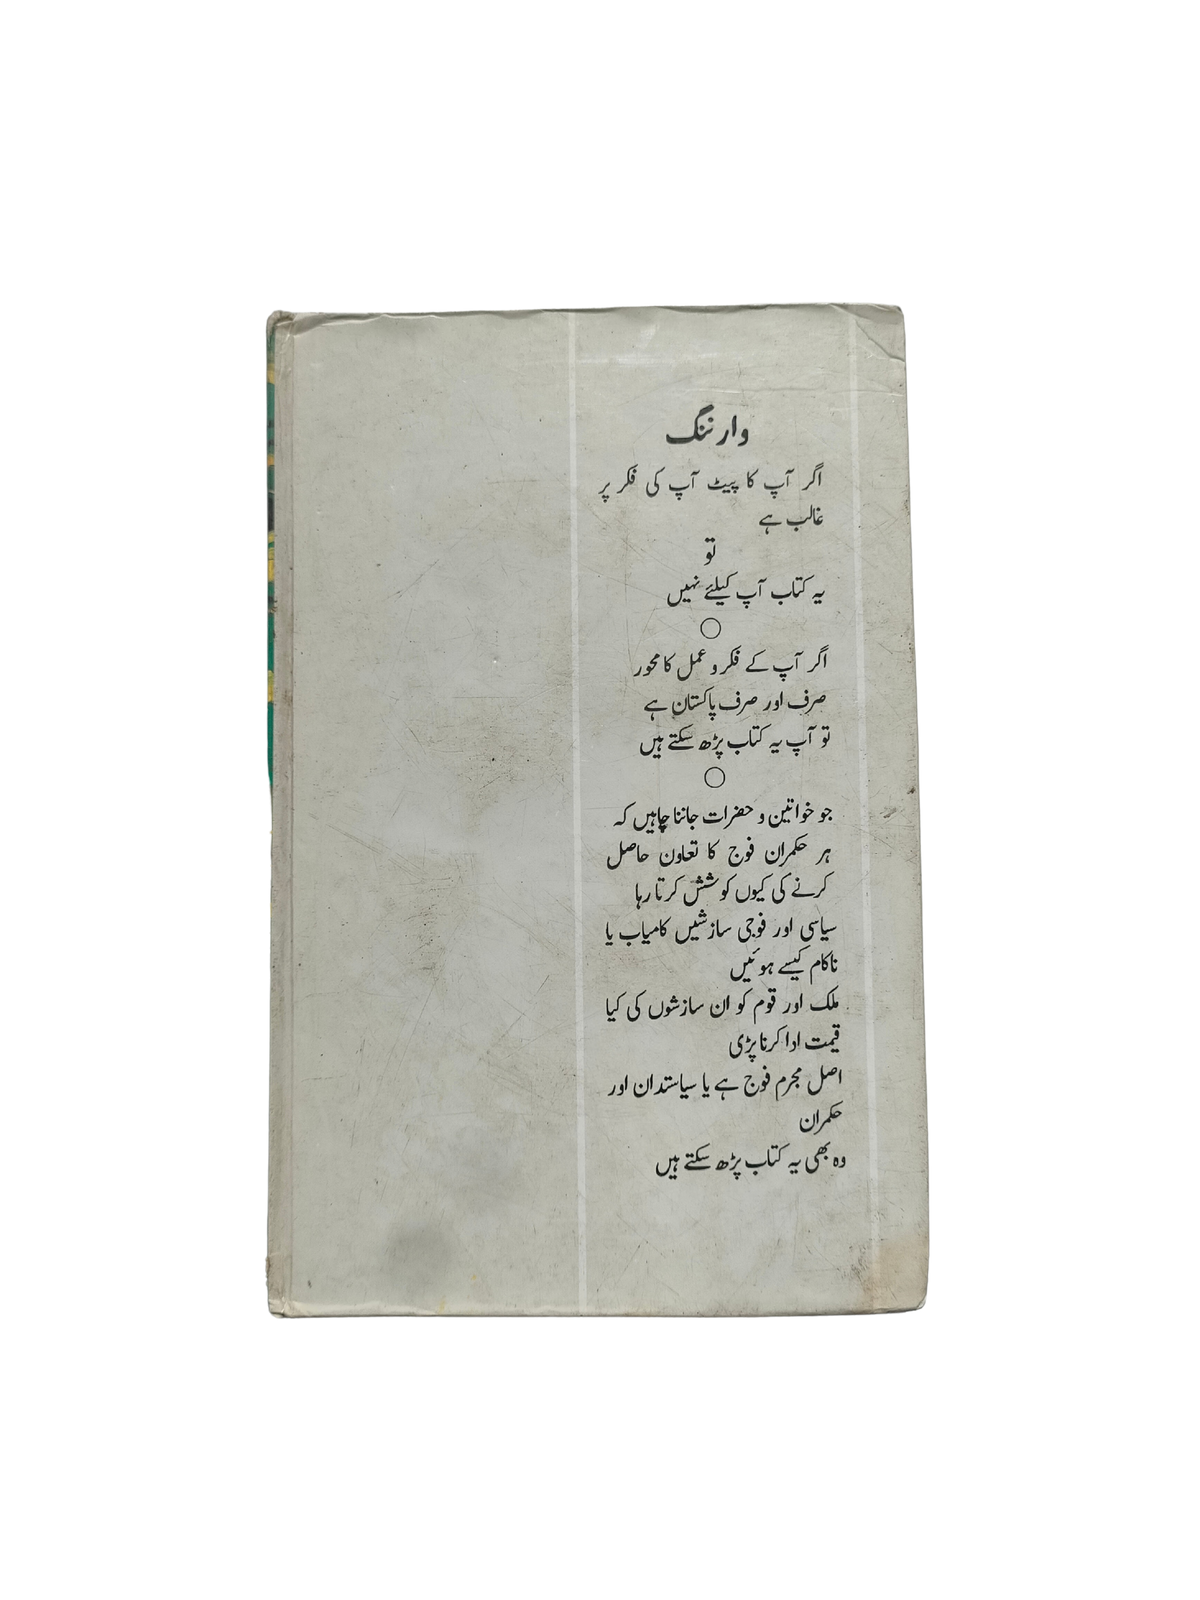 وارننگ
اگر آپ کا پیٹ آپ کی فکر پر
غالب ہے
تو
یہ کتاب آپ کیلئے نہیں
اگر آپ کے فکر و عمل کا محور
صرف اور صرف پاکستان ہے
تو آپ یہ کتاب پڑھ سکتے ہیں
جو خواتین و حضرات جاننا چاہیں کہ
ہر حکمران فوج کا تعاون حاصل
کرنے کی کیوں کوشش کرتا رہا
سیاسی اور فوجی سازشیں کامیاب یا
ناکام کیسے ہوئیں
ملک اور قوم کو ان سازشوں کی کیا
قیمت ادا کرنا پڑی
اصل مجرم فوج ہے یا سیاستدان اور
حکمران
وہ بھی یہ کتاب پڑھ سکتے ہیں